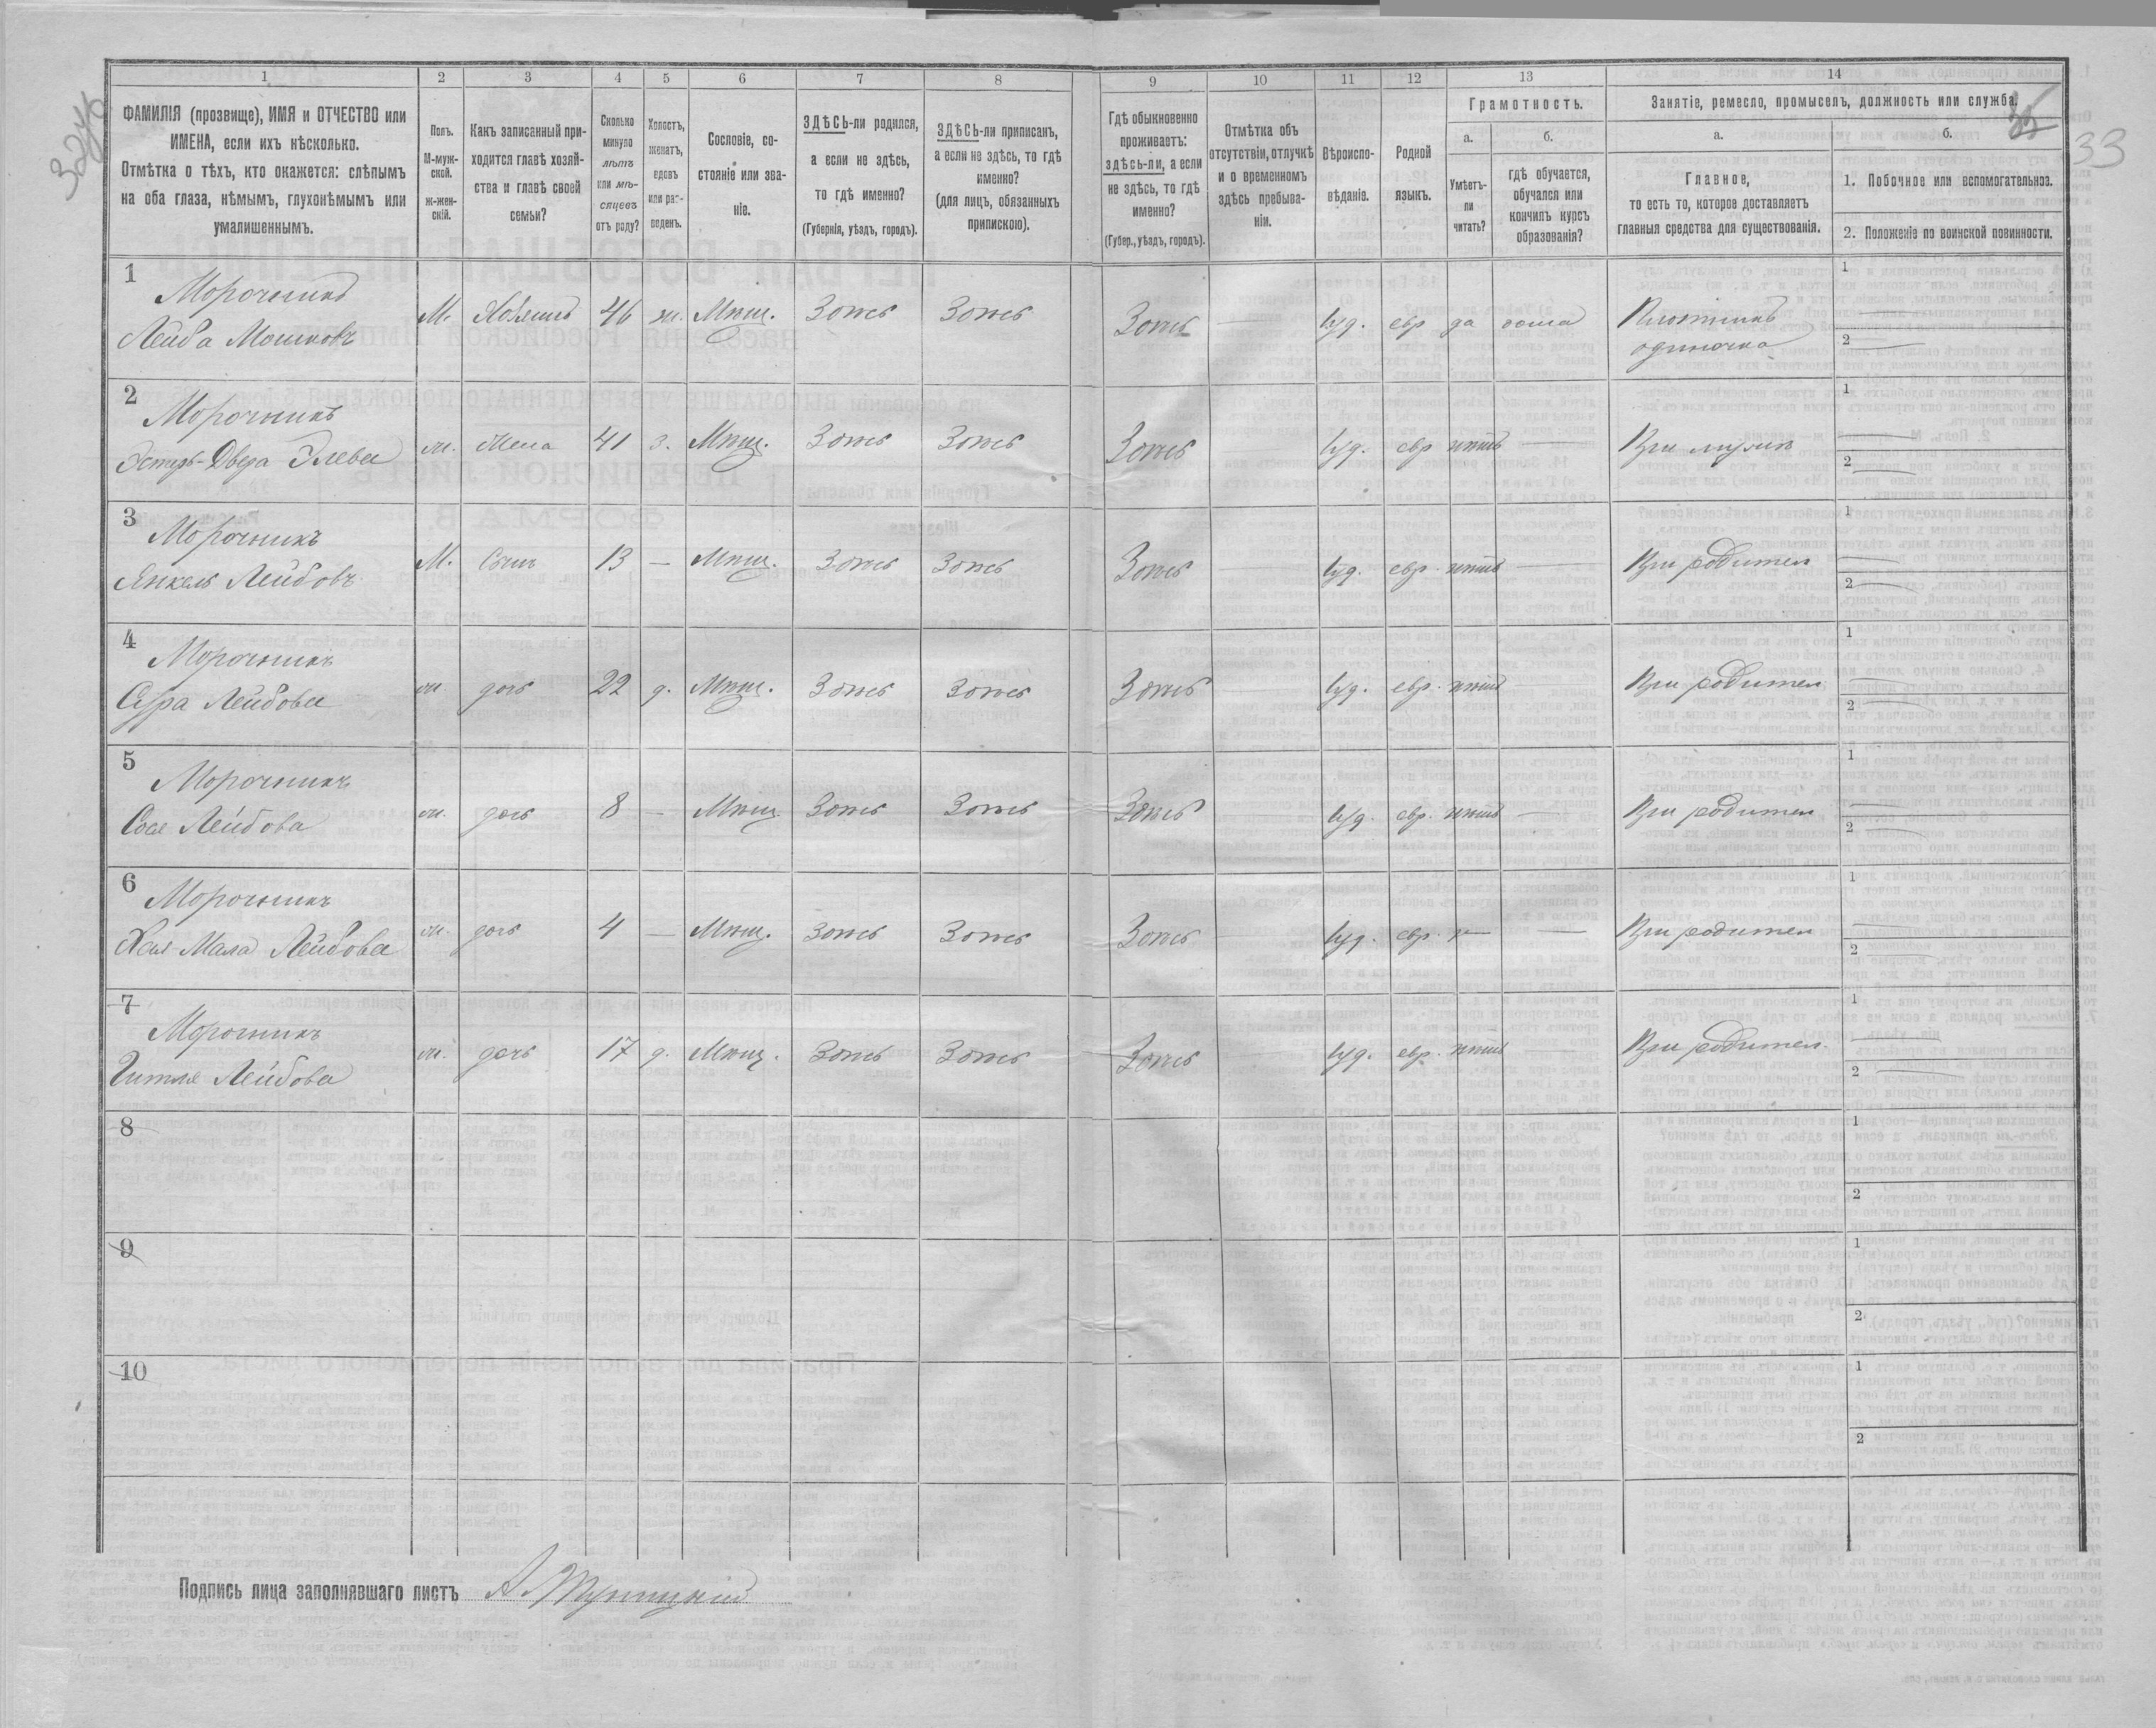 33
1 2 3 4 5 6 7 8 9 10 11 12 13 14
ФАМИЛІЯ (прозвище), ИМЯ и ОТЧЕСТВО или
ИМЕНА, если ихъ нѣсколько.
Отмѣтка о тѣхъ, кто окажется: слѣпымъ
на оба глаза, нѣмымъ, глухонѣмымъ или
умалишеннымъ.
Полъ.
М-муж-
ской.
ж-жен-
скій.
Какъ записанный при-
ходится главѣ хозяй-
ства и главѣ своей
семьи?
Сколько
минуло
лѣтъ
или мѣ-
сяцевъ
отъ роду?
Холостъ,
женатъ,
вдовъ
или раз-
веденъ.
Сословіе, со-
стояніе или зва-
ніе.
ЗДѢСЬ-ли родился,
а если не здѣсь,
то гдѣ именно?
(Губернія, уѣздъ, городъ).
ЗДѢСЬ-ли приписанъ,
а если не здѣсь, то гдѣ
именно?
(для лицъ, обязанныхъ
припискою).
Гдѣ обыкновенно
проживаетъ:
здѣсь-ли, а если
не здѣсь, то гдѣ
именно?
(Губер., уѣздъ, городъ).
Отмѣтка объ
отсутствіи, отлучкѣ
и о временномъ
здѣсь пребыва-
ніи.
Вѣроиспо-
вѣданіе.
Родной
языкъ.
Грамотность.
а.
Умѣетъ-
ли
читать?
б.
гдѣ обучается,
обучался или
кончилъ курсъ
образованія?
Занятіе, ремесло, промыселъ, должность или служба.
а.
Главное,
то есть то, которое доставляетъ
главныя средства для существованія.
б.
1. Побочное или вспомогательное.
2. Положеніе по воинской повинности.
1 Морочникъ
Лейба Мошковъ М. Хозяинъ 46 ж. Мѣщ. Здѣсь Здѣсь Здѣсь — Іуд. евр да дома Плотникъ
одиночка 1 — 2 —
2 Морочникъ
Эстеръ-Двера ж. Жена 41 з. Мѣщ. Здѣсь Здѣсь Здѣсь — Іуд. евр нѣтъ — При мужѣ 1 — 2 —
3 Морочникъ
Янкель Лейбовъ М. Сынъ 13 — Мѣщ. Здѣсь Здѣсь Здѣсь — Іуд. евр. нѣтъ — При родител 1 — 2 —
4 Морочникъ
Сура Лейбова ж дочь 22 д. Мѣщ. Здѣсь Здѣсь Здѣсь — Іуд. евр. нѣтъ — При родител 1 — 2 —
5 Морочникъ
Сося Лейбова ж. дочь 8 — Мѣщ Здѣсь Здѣсь Здѣсь — Іуд. евр. нѣтъ — При родител 1 — 2 —
6 Морочникъ
Хая Мала Лейбова ж. дочь 4 — Мѣщ. Здѣсь Здѣсь Здѣсь — Іуд. евр. — — При родител 1 — 2
7 Морочникъ
Гитля Лейбова ж. дочь 17 д. Мѣщ. Здѣсь Здѣсь Здѣсь — Іуд. евр. нѣтъ — При родител. 1 — 2 —
8 1 2
9 1 2
10 1 2
Подпись лица заполнявшаго листъ